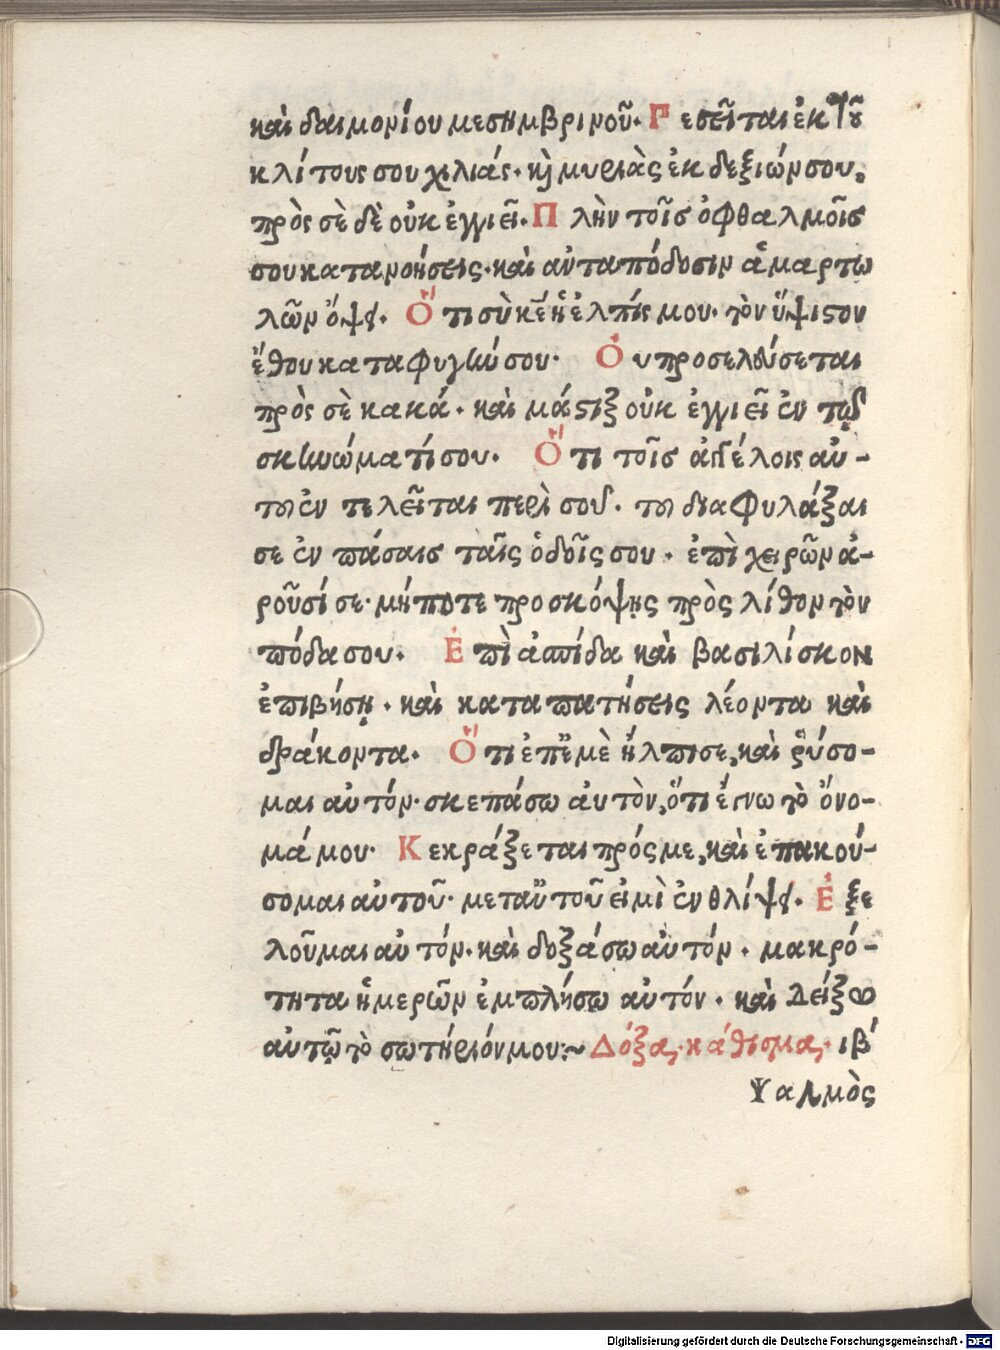 καὶ δαιμονίου μεσημβρινοῦ. Πεσεῖται ἐκ τοῦ
κλίτους σου χιλιάς. κὶ μυριὰς ἐκ δεξιῶν σου,
πρὸς σὲ δὲ οὐκ ἐγγιεῖ. Πλὴν τοῖς ὀφθαλμοῖς
σου κατανοήσεις. καὶ ἀνταπόδοσιν ἁμαρτω
λῶν ὄψει. Ὅτι σὺ κε ἡ ἐλπίς μου. τὸν ὕψιστον
ἔθου καταφυγήν σου. Οὐ προσελεύσεται
πρὸς σὲ κακά. καὶ μάστιξ οὐκ ἐγγιεῖ ἐν τῷ
σκηνώματί σου. Ὅτι τοῖς ἀγγέλοις αὐ-
τοῦ ἐντελεῖται περὶ σοῦ. τοῦ διαφυλάξαι
σε ἐν πάσαις ταῖς ὁδοῖς σου. ἐπὶ χειρῶν ἀ-
ροῦσί σε. μήποτε προσκόψῃς πρὸς λίθον τὸν
πόδα σου. Ἐπὶ ἀσπίδα καὶ βασιλίσκον
ἐπιβήσῃ. καὶ καταπατήσεις λέοντα καὶ
δράκοντα. Ὅτι ἐπ' ἐμὲ ἤλπισε, καὶ ῥύσο-
μαι αὐτόν. σκεπάσω αὐτὸν, ὅτι ἔγνω τὸ ὄνο-
μά μου. Κεκράξεται πρός με, καὶ ἐπακού-
σομαι αὐτοῦ. μετ' αὐτοῦ εἰμὶ ἐν θλίψει. Ἐξε
λοῦμαι αὐτόν. καὶ δοξάσω αὐτόν. μακρό-
τητα ἡμερῶν ἐμπλήσω αὐτόν. καὶ Δείξω
αὐτῷ τὸ σωτήριόν μου:~ Δόξα, κάθισμα, ιβ´
Ψαλμὸς
Digitalisierung gefördert durch die Deutsche Forschungsgemeinschaft - DFG